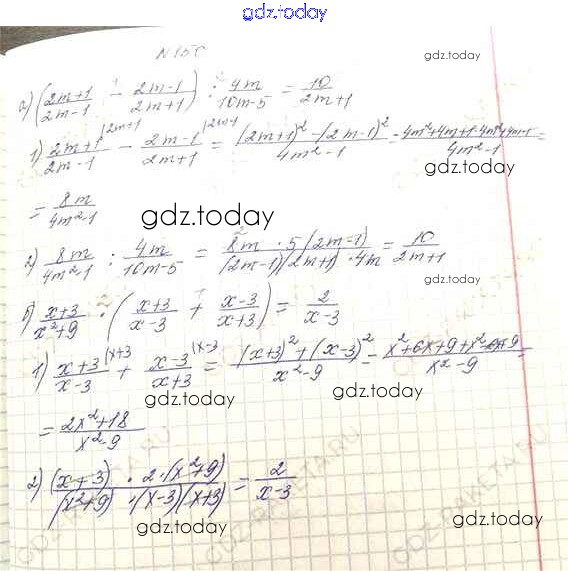 gdz.today
N 150
gdz.today
а) ((2m+1)/(2m-1) - (2m-1)/(2m+1)) : 4m/(10m-5) = 10/(2m+1)
1) (2m+1)/(2m-1) |2m+1 - (2m-1)/(2m+1) |2m-1 = ((2m+1)² - (2m-1)²)/(4m²-1) = (4m²+4m+1-4m²+4m-1)/(4m²-1) =
= 8m/(4m²-1)
gdz.today gdz.today
2) 8m/(4m²-1) : 4m/(10m-5) = (8m · 5(2m-1))/((2m-1)(2m+1) · 4m) = 10/(2m+1)
gdz.today
б) (x+3)/(x²+9) · ((x+3)/(x-3) + (x-3)/(x+3)) = 2/(x-3)
1) (x+3)/(x-3) |x+3 + (x-3)/(x+3) |x-3 = ((x+3)² + (x-3)²)/(x²-9) = (x²+6x+9+x²-6x+9)/(x²-9) =
gdz.today gdz.today
= (2x²+18)/(x²-9)
gdz.today
2) ((x+3) · 2 · (x²+9))/((x²+9) · (x-3)(x+3)) = 2/(x-3)
gdz.today gdz.today